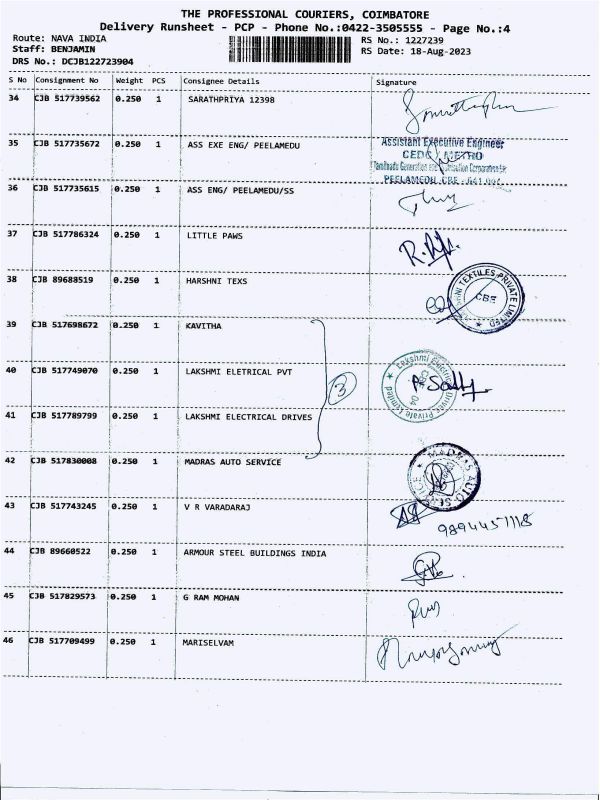 THE PROFESSIONAL COURIERS, COIMBATORE
Delivery Runsheet - PCP - Phone No.:0422-3505555 - Page No.:4
Route: NAVA INDIA
RS No.: 1227239
Staff: BENJAMIN
RS Date: 18-Aug-2023
DRS No.: DCJB122723904
S No Consignment No Weight PCS Consignee Details Signature
34 CJB 517739562 0.250 1 SARATHPRIYA 12398
35 CJB 517735672 0.250 1 ASS EXE ENG/ PEELAMEDU
Assistant Executive Engineer
CEDC / METRO
PEELAMEDU
36 CJB 517735615 0.250 1 ASS ENG/ PEELAMEDU/SS
37 CJB 517786324 0.250 1 LITTLE PAWS
38 CJB 89688519 0.250 1 HARSHNI TEXS
TEXTILES PRIVATE LIMITED
CBE
39 CJB 517698672 0.250 1 KAVITHA
40 CJB 517749070 0.250 1 LAKSHMI ELETRICAL PVT
3
Lakshmi Electrical Drive Private Limited
41 CJB 517789799 0.250 1 LAKSHMI ELECTRICAL DRIVES
42 CJB 517830008 0.250 1 MADRAS AUTO SERVICE
MADRAS AUTO SERVICE
43 CJB 517743245 0.250 1 V R VARADARAJ
9894457118
44 CJB 89660522 0.250 1 ARMOUR STEEL BUILDINGS INDIA
45 CJB 517829573 0.250 1 G RAM MOHAN
46 CJB 517709499 0.250 1 MARISELVAM